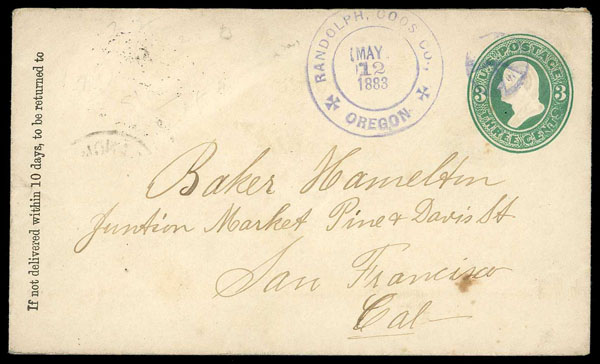 If not delivered within 10 days, to be returned to
RANDOLPH, COOS CO.,
MAY
12
1883
OREGON
U.S. POSTAGE
3 3
THREE CENTS
Baker Hamelton
Juntion Market Pine & Davis St
San Francisco
Cal